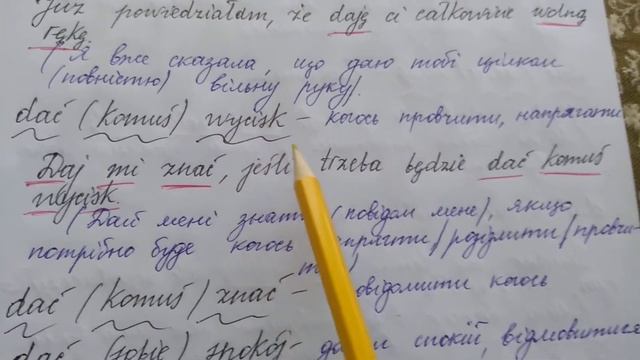 Już powiedziałam, że daję ci całkowicie wolną
rękę.
(Я вже сказала, що даю тобі цілком
(повністю) вільну руку).
dać (komuś) wycisk – когось провчити, напрягати
Daj mi znać, jeśli trzeba będzie dać komuś
wycisk.
(Дай мені знати (повідом мене), якщо
потрібно буде когось
dać (komuś) znać – когось
dać (sobie) spokój – спокій, відмовитися